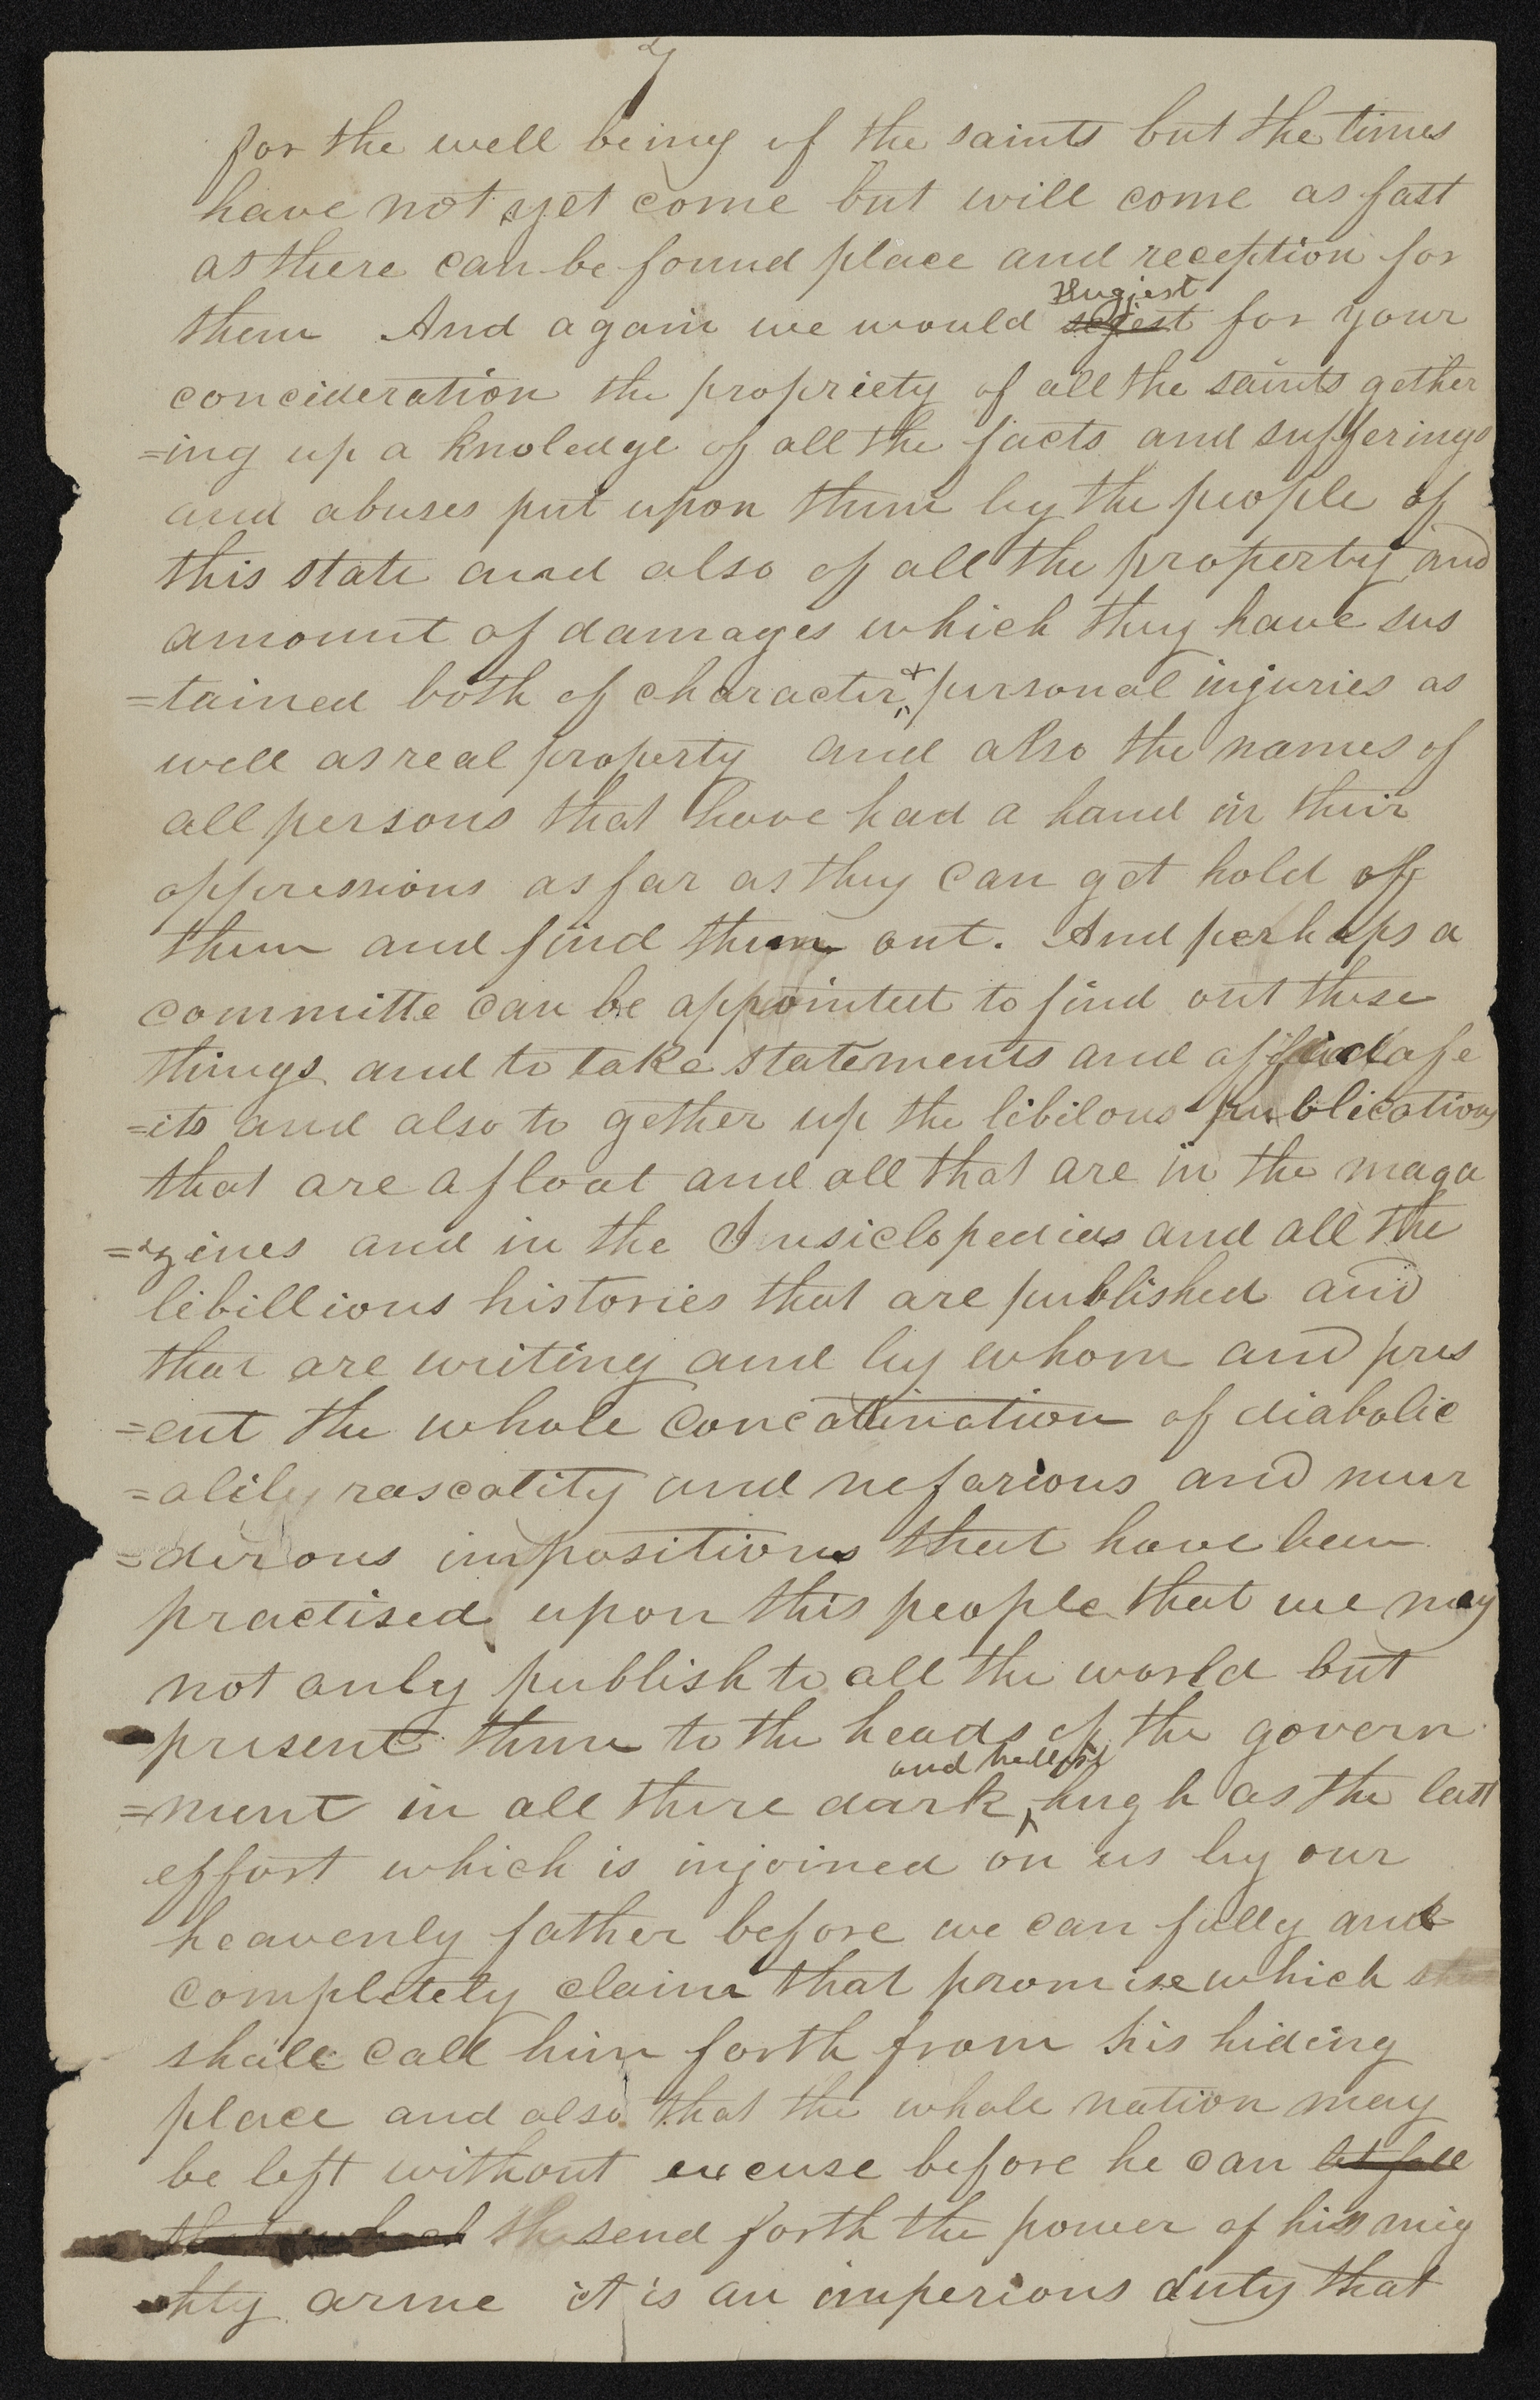 7
for the well being of the saints but the times
have not yet come but will come as fast
as there can be found place and reception for
Sugjest
them And again we would sejest for your
concideration the propriety of all the saints gether
=ing up a knoledge of all the facts and sufferings
and abuses put upon them by the people of
this state and also of all the property and
amount of damages which they have sus
=tained both of character & personal injuries as
well as real property and also the names of
all persons that have had a hand in their
oppressions as far as they can get hold of
them and find them out. And perhaps a
committe can be appointed to find out these
things and to take statements and affidafe
=its and also to gether up the libilous publications
that are afloat and all that are in the maga
=zines and in the Insiclopedias and all the
libillious histories that are published and
that are writing and by whom and pres
=ent the whole concatination of diabolic
=alily rascality and nefarious and mur
=derous impositions that have been
practised upon this people that we may
not only publish to all the world but
present them to the heads of the govern
and hellish
=ment in all there dark hugh as the last
effort which is injoined on us by our
heavenly father before we can fully and
completely claim that promise which
shall call him forth from his hiding
place and also that the whole nation may
be left without excuse before he can let fall
that which th send forth the power of his mig
hty arme it is an imperious duty that